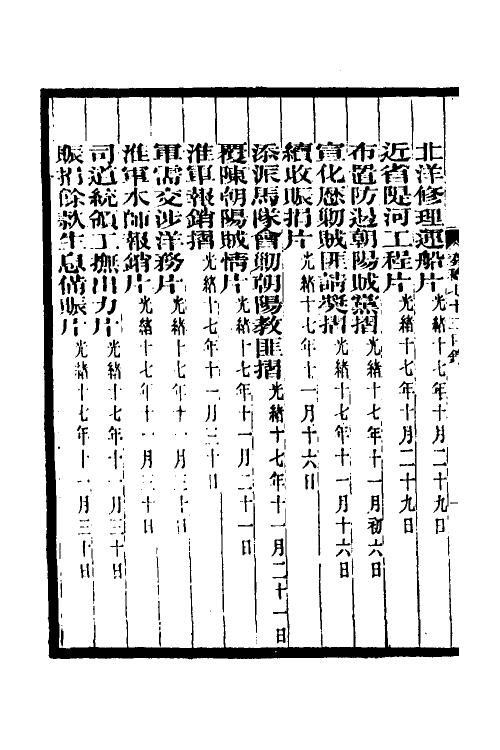 奏稿七十三目錄
一
北洋修理運船片光緒十七年十月二十九日
近省隄河工程片光緒十七年十月二十九日
布置防遏朝陽賊黨摺光緒十七年十一月初六日
宣化歷勦賊匪請獎摺光緒十七年十一月十六日
續收賑捐片光緒十七年十一月十六日
添派馬隊會勦朝陽教匪摺光緒十七年十一月二十一日
覆陳朝陽賊情片光緒十七年十一月二十一日
淮軍報銷摺光緒十七年十一月三十日
軍需交涉洋務片光緒十七年十一月三十日
淮軍水師報銷片光緒十七年十一月三十日
司道統領工撫出力片光緒十七年十一月三十日
賑捐餘款生息備賑片光緒十七年十一月三十日